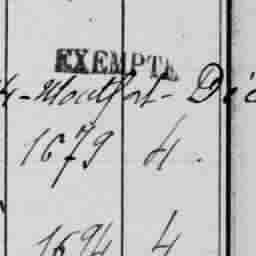 EXEMPTÉ
4-Montfort-Déc
1679 4.
1694 4